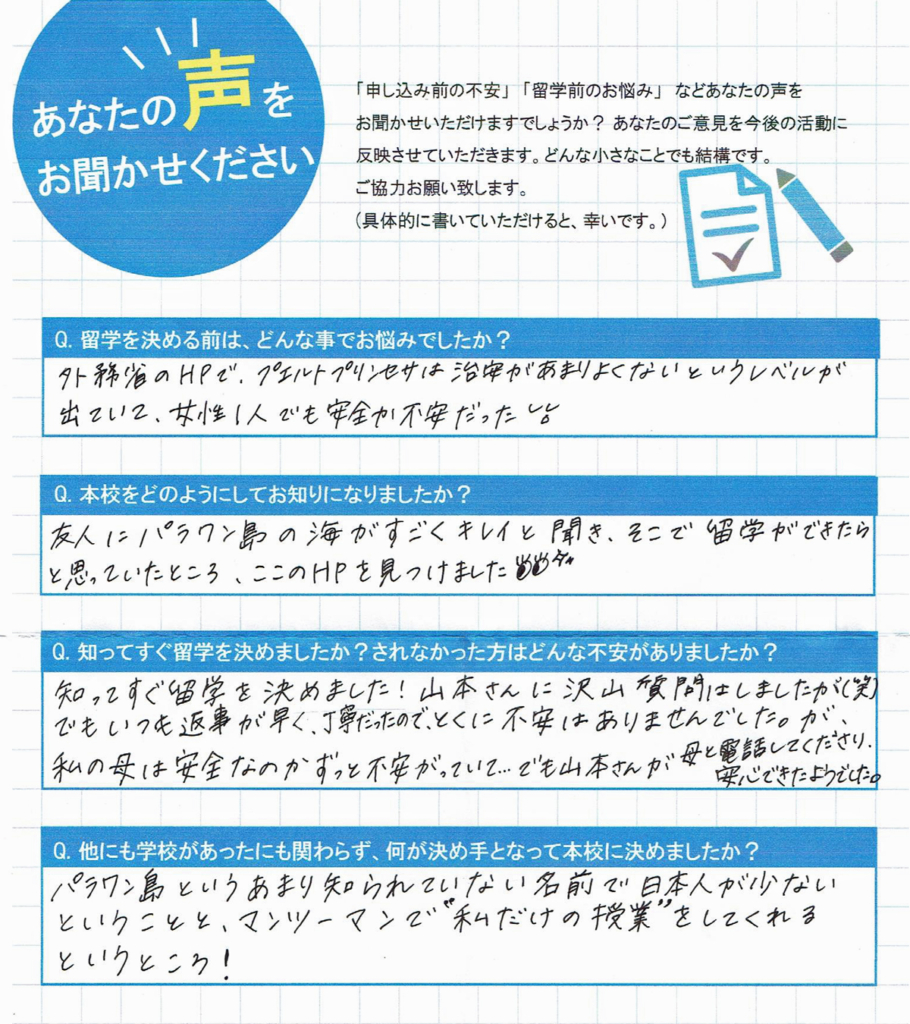 あなたの声を
お聞かせください
「申し込み前の不安」「留学前のお悩み」 などあなたの声を
お聞かせいただけますでしょうか？ あなたのご意見を今後の活動に
反映させていただきます。どんな小さなことでも結構です。
ご協力お願い致します。
（具体的に書いていただけると、幸いです。）
Q. 留学を決める前は、どんな事でお悩みでしたか？
外務省のHPで、プエルトプリンセサは治安があまりよくないというレベルが
出ていて、女性1人でも安全か不安だった
Q. 本校をどのようにしてお知りになりましたか？
友人にパラワン島の海がすごくキレイと聞き、そこで留学ができたら
と思っていたところ、ここのHPを見つけました
Q. 知ってすぐ留学を決めましたか？されなかった方はどんな不安がありましたか？
知ってすぐ留学を決めました！山本さんに沢山質問はしましたが（笑）
でもいつも返事が早く、丁寧だったので、とくに不安はありませんでした。が、
私の母は安全なのかずっと不安がっていて…でも山本さんが母と電話してくださり、
安心できたようでした。
Q. 他にも学校があったにも関わらず、何が決め手となって本校に決めましたか？
パラワン島というあまり知られていない名前で日本人が少ない
ということと、マンツーマンで“私だけの授業”をしてくれる
というところ！